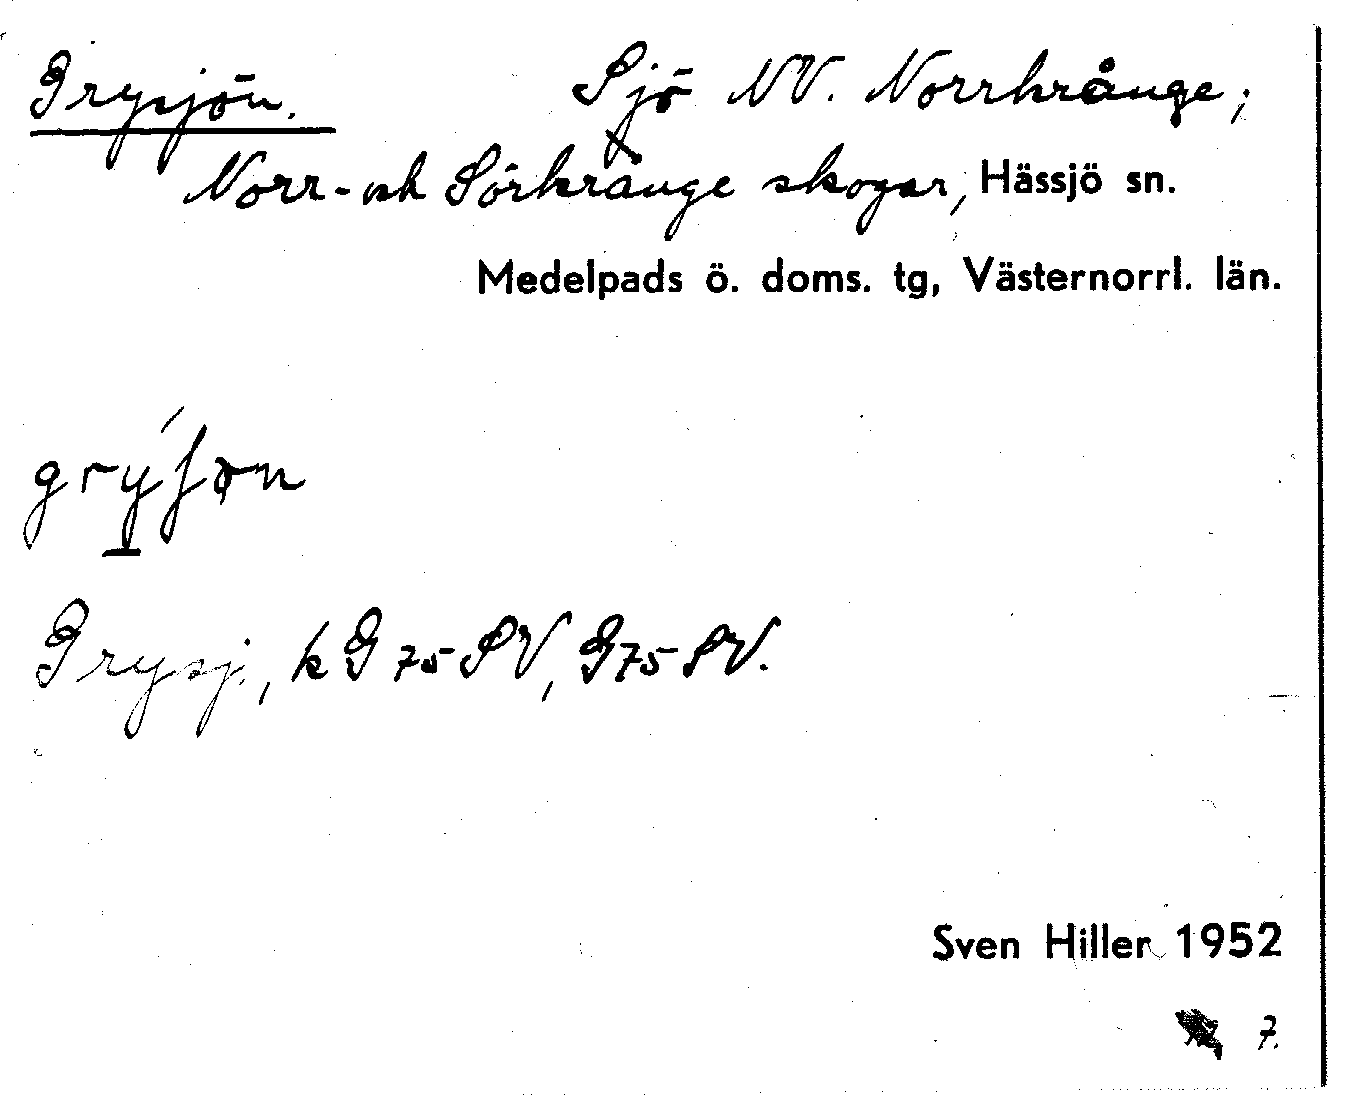 Grysjön. Sjö NV. Norrkrånge;
Norr- och Sörkrånge skogar, Hässjö sn.
Medelpads ö. doms. tg, Västernorrl. län.
Grysj., k G 75 SV, G 75 SV.
Sven Hiller 1952
7.